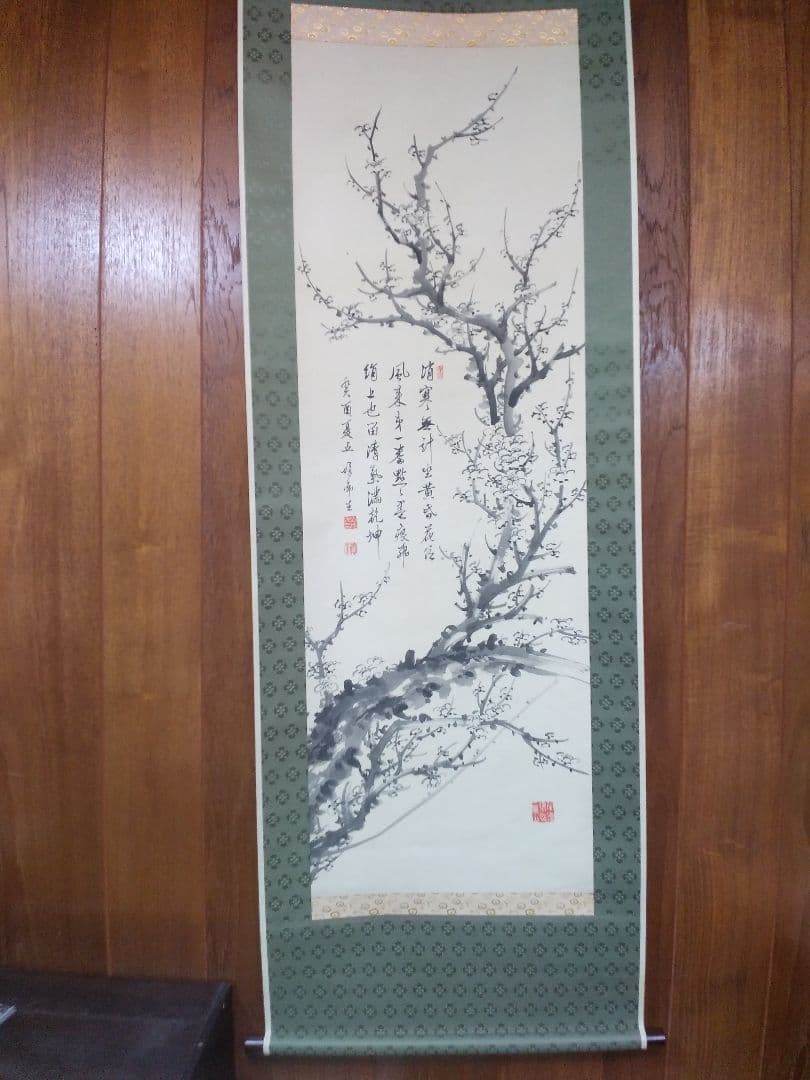 消寒無計坐黃昏花信
風來第一番點點墨痕飛
絹上也留清氣滿乾坤
癸酉夏五